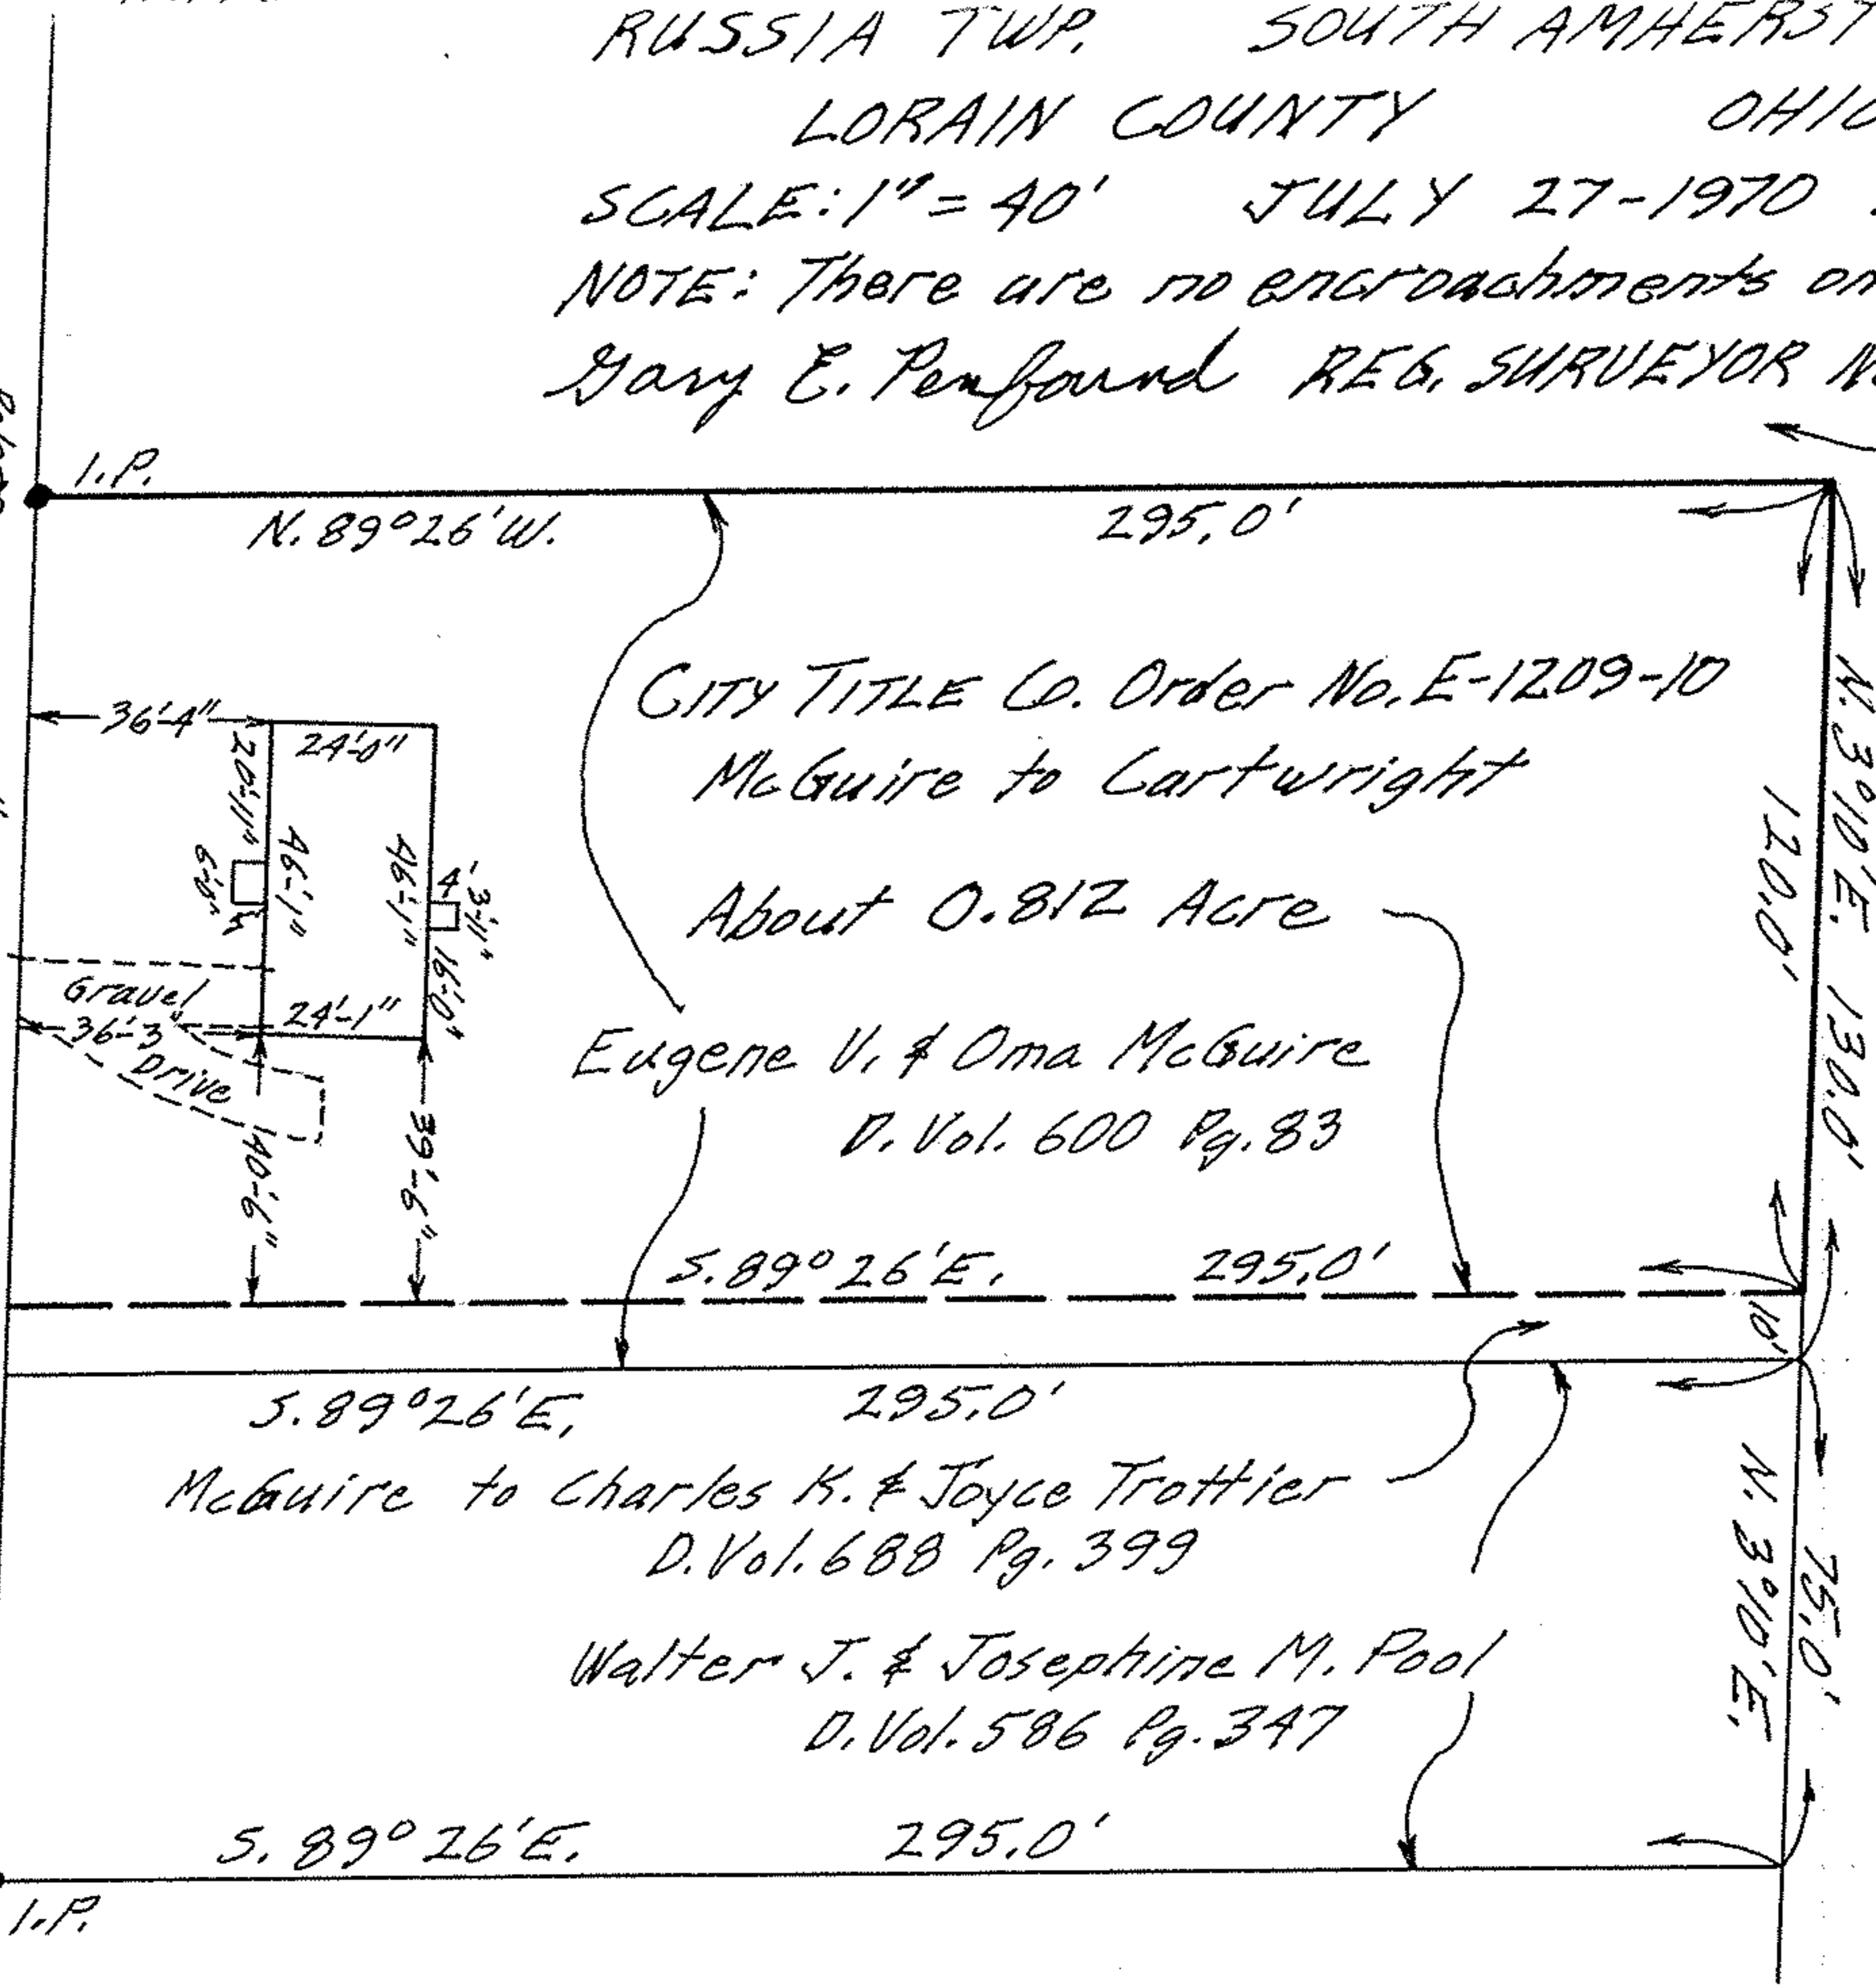 RUSSIA TWP. SOUTH AMHERST
LORAIN COUNTY OHIO
SCALE: 1" = 40' JULY 27-1970
NOTE: There are no encroachments on
Gary E. Penfound REG. SURVEYOR
I.P.
N. 89° 26' W. 295.0'
CITY TITLE Co. Order No. E-1209-10
McGuire to Cartwright
About 0.812 Acre
N. 3° 10' E. 130.0'
120.0'
36'-4"
24'-0"
20'-11"
46'-1"
46'-1"
6'-0"
4'
3'-11"
16'-0"
Gravel
36'-3"
24'-1"
Drive
40'-6"
39'-6"
Eugene V. & Oma McGuire
D. Vol. 600 Pg. 83
S. 89° 26' E. 295.0'
10'
S. 89° 26' E. 295.0'
McGuire to Charles K. & Joyce Trottier
D. Vol. 688 Pg. 399
N. 3° 10' E.
75.0'
Walter J. & Josephine M. Pool
D. Vol. 586 Pg. 347
S. 89° 26' E. 295.0'
I.P.